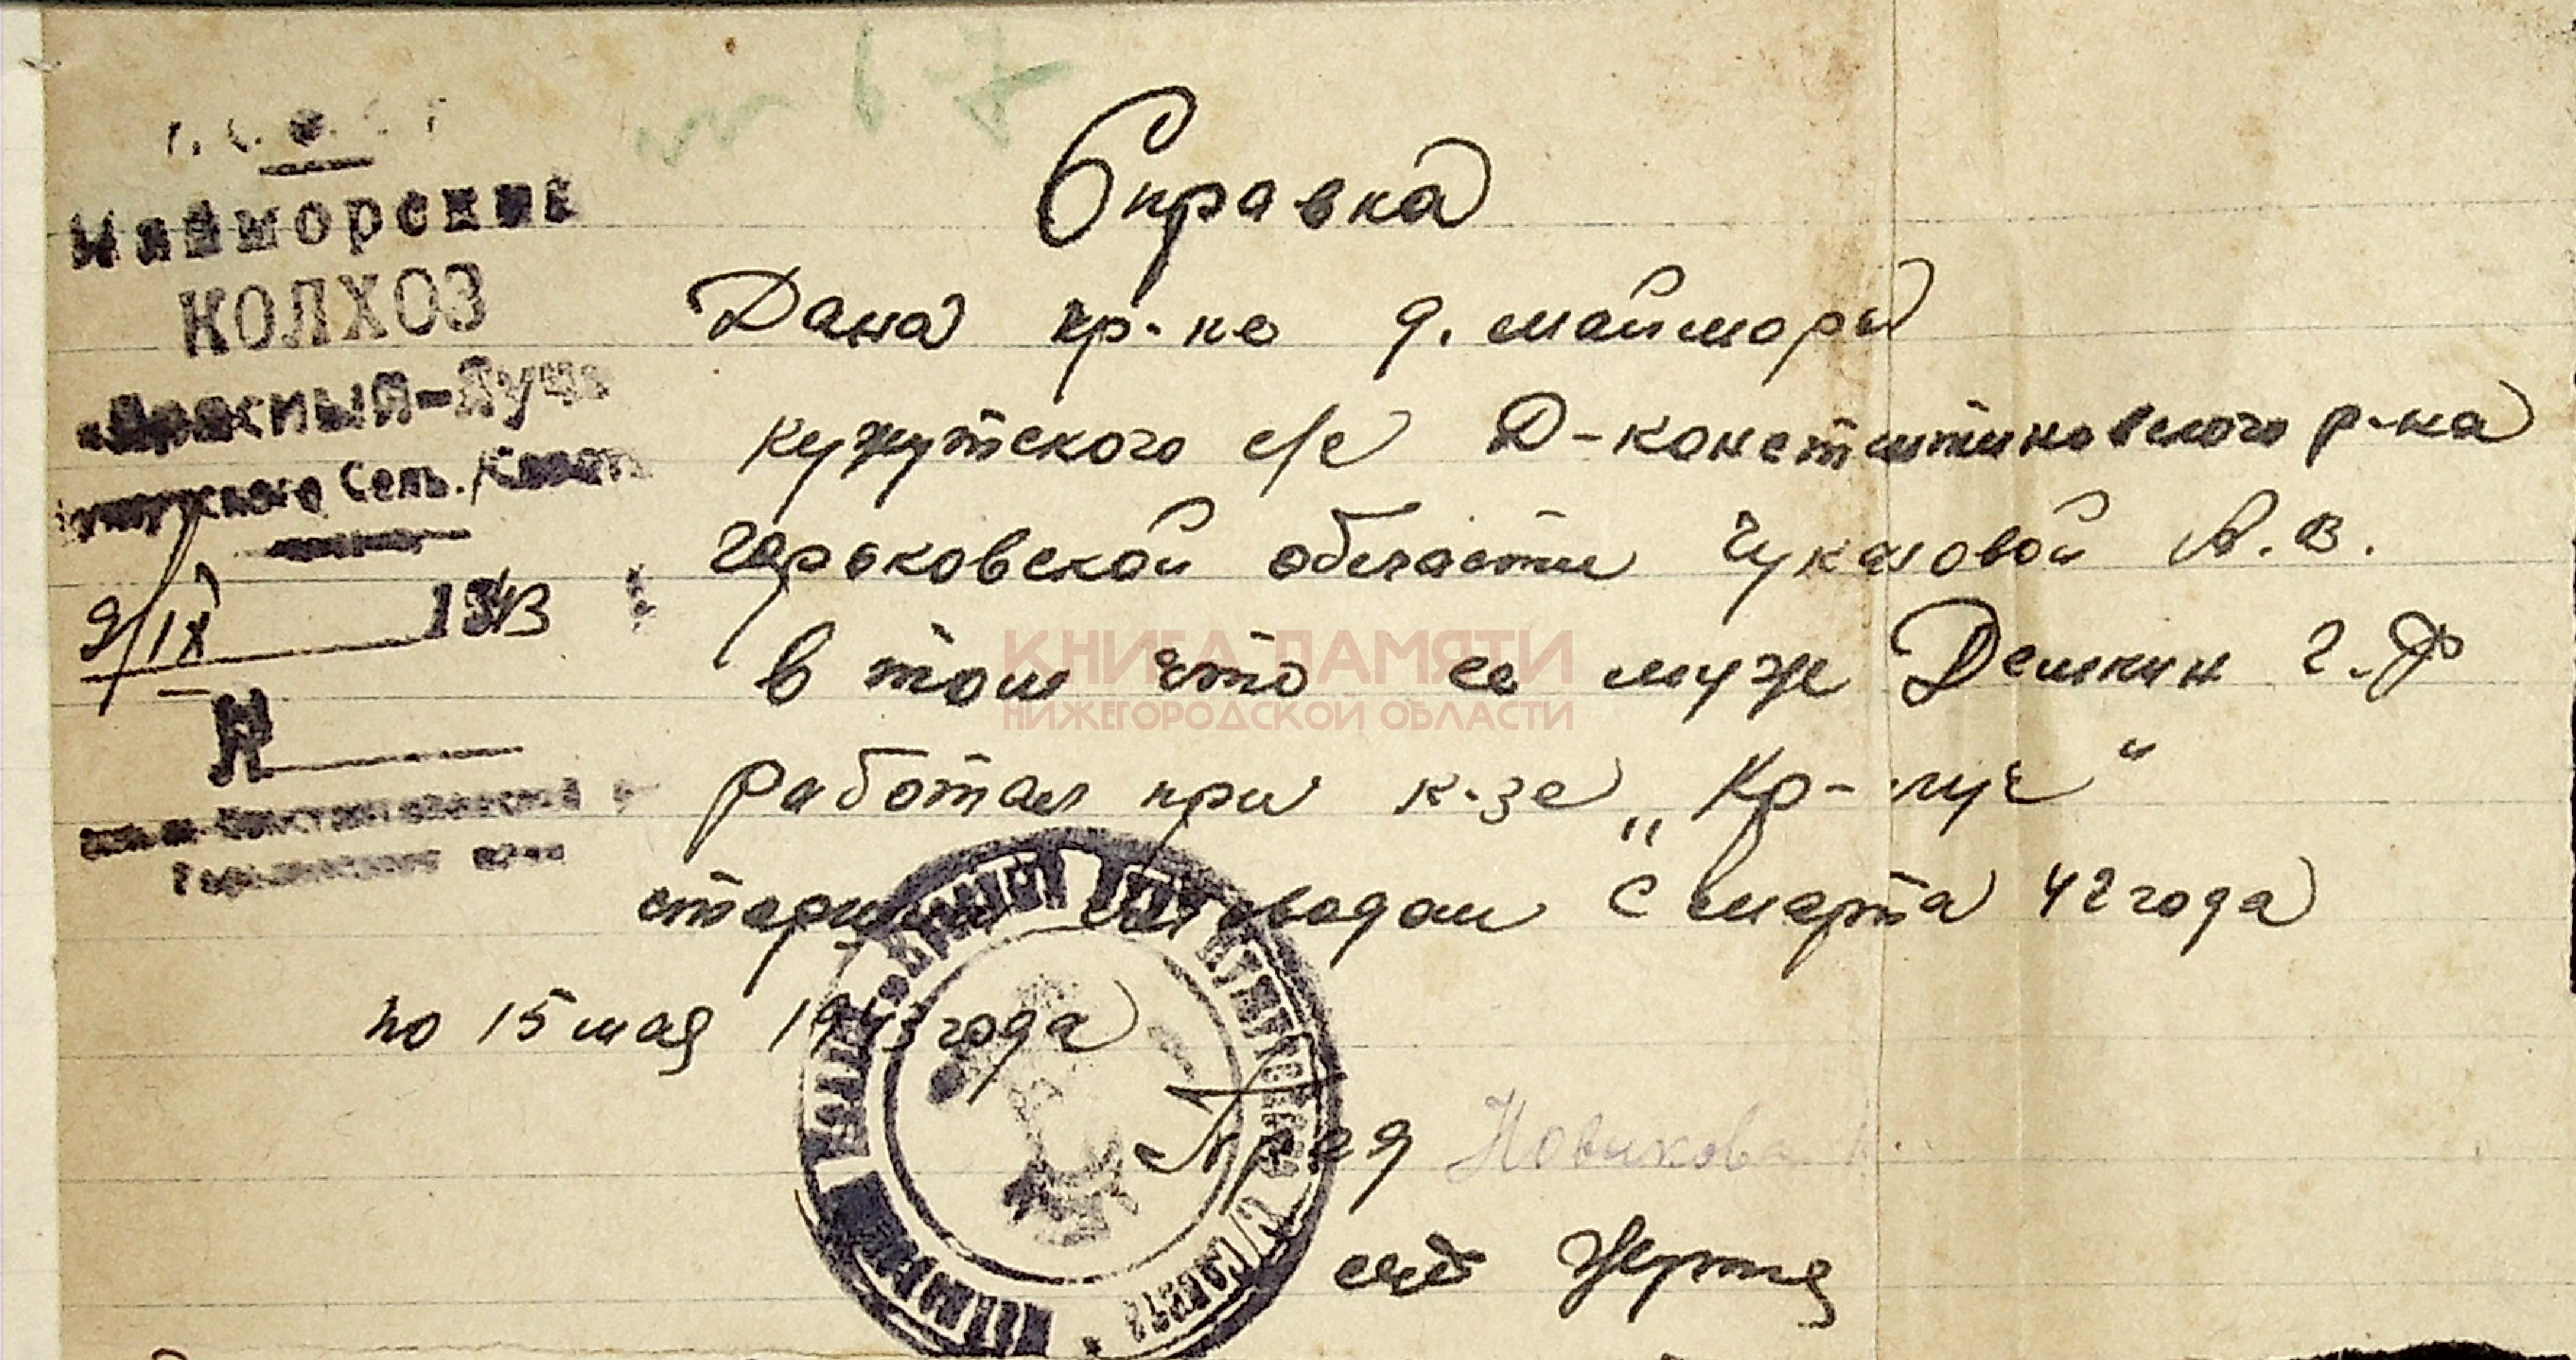 Майморский
КОЛХОЗ
„Красный-Луч“
Кужутского Сель./Совета
9/IX 1943
№
Дальне-Константиновский р
Горьковской
Справка
Дана кр-ке д. Майморы
Кужутского с/с Д-Константиновского р-на
Горьковской области Чукаловой А. В.
в том что ее муж Демкин Г. Ф
работал при к-зе „Кр-луч“
старшим с марта 42 года
по 15 мая 1943 года
Пред Новикова
КНИГА ПАМЯТИ
НИЖЕГОРОДСКОЙ ОБЛАСТИ